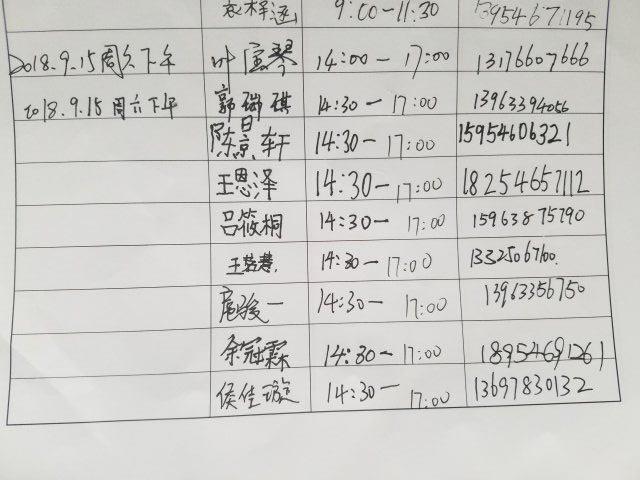 9:00-11:30 13954671195
2018.9.15周六下午 叶宝琴 14:00-17:00 13176607666
2018.9.15周六下午 郭瑞祺 14:30-17:00 13963394056
陈景轩 14:30-17:00 15954606321
王恩泽 14:30-17:00 18254657112
吕筱桐 14:30-17:00 15963875790
王若慧 14:30-17:00 1332506760.
庞骏一 14:30-17:00 13963356750
余冠霖 14:30-17:00 18954691261
侯佳璇 14:30-17:00 13697830132